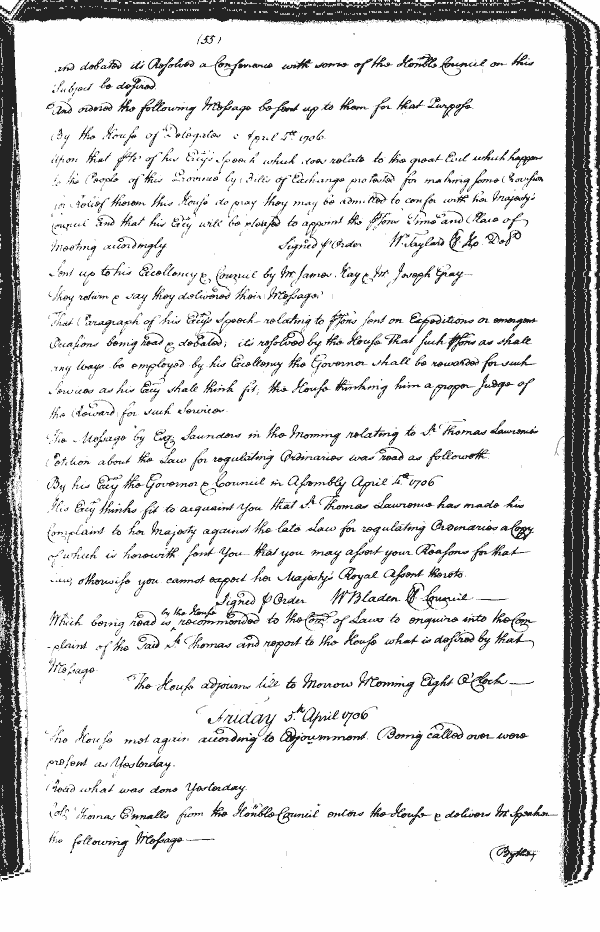 (55)
and debated it's Resolved a Conference with some of the Honble Council on this
Subject be desired
And ordered the following Message be sent up to them for that Purpose
By the House of Delegates April 4th 1706.
Upon that pte of his Excys Speech which does relate to the great Evil which happens
to the People of this Province by Bills of Exchange protested for making some Provision
for Relief therein this House do pray they may be admitted to confer with her Majesty's
Council and that his Excy will be pleased to appoint the psons Time and Place of
meeting accordingly Signed p Order W Taylard Cl Ho: Deld
Sent up to his Excellency & Council by Mr James Hay & Mr Joseph Gray
they return & say they delivered their Message
That Paragraph of his Excys Speech relating to psons sent on Expeditions or emergent
Occasions being read & debated; it's resolved by the House That such psons as shall
any Ways be employed by his Excellency the Governor shall be rewarded for such
Services as his Excy shall think fit, the House thinking him a proper Judge of
the Reward for such Services.
The Message by Esqr Saunders in the Morning relating to Sr Thomas Lawrence's
Petition about the Law for regulating Ordinaries was read as followeth
By his Excy the Governor & Council in Assembly April 4th 1706
His Excy thinks fit to acquaint You that Sr Thomas Lawrence has made his
Complaint to her Majesty against the late Law for regulating Ordinaries a Copy
of which is herewith sent You that you may assert your Reasons for that
Law, otherwise you cannot expect her Majesty's Royal Assent thereto.
Signed p Order W Bladen Cl Council
by the House
Which being read is recommended to the Comee of Laws to enquire into the Com
-plaint of the Said Sr Thomas and report to the House what is desired by that
Message
The House adjourns till to Morrow Morning Eight O'Clock
Friday 5th April 1706
The House met again according to Adjournment. Being called over were
present as Yesterday.
Read what was done Yesterday.
Colo Thomas Ennalls from the Honble Council enters the House & delivers Mr Speaker
the following Message
(By the